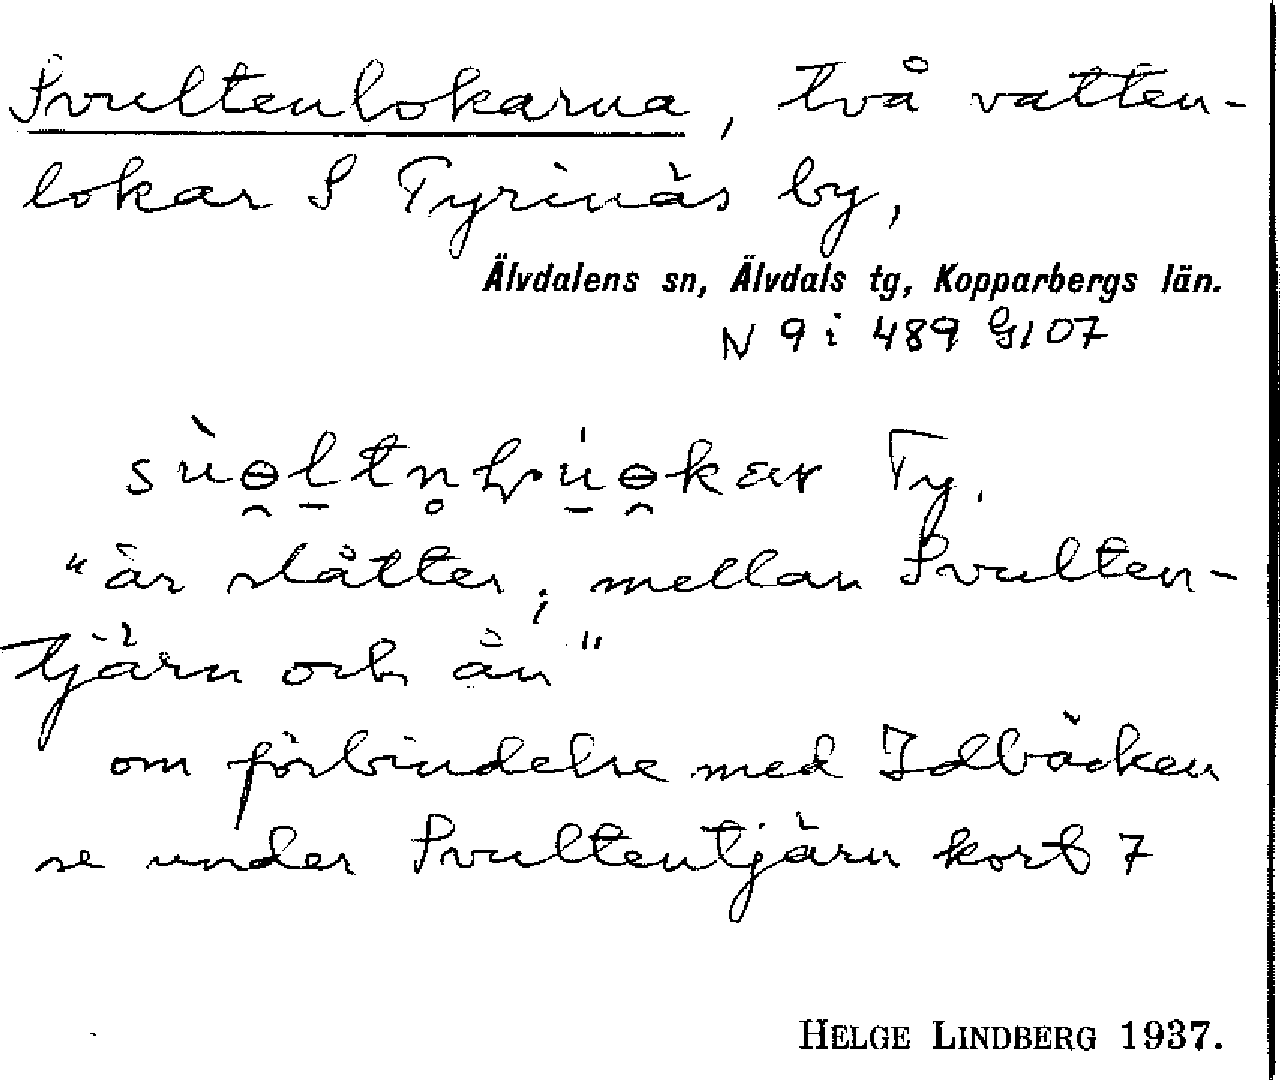 Svultenlokarna, två vatten-
lokar S Tyrinäs by,
Älvdalens sn, Älvdals tg, Kopparbergs län.
N 9 i 489 G107
Ty.
"är slåtter; mellan Svulten-
tjärn och ån"
om förbindelse med Idbäcken
se under Svultentjärn kort 7
HELGE LINDBERG 1937.